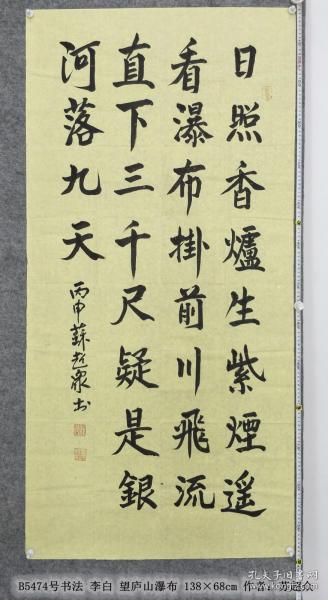 日照香爐生紫煙遥
看瀑布掛前川飛流
直下三千尺疑是銀
河落九天
丙申蘇超衆书
B5474号书法 李白 望庐山瀑布 138×68cm 作者：苏超众